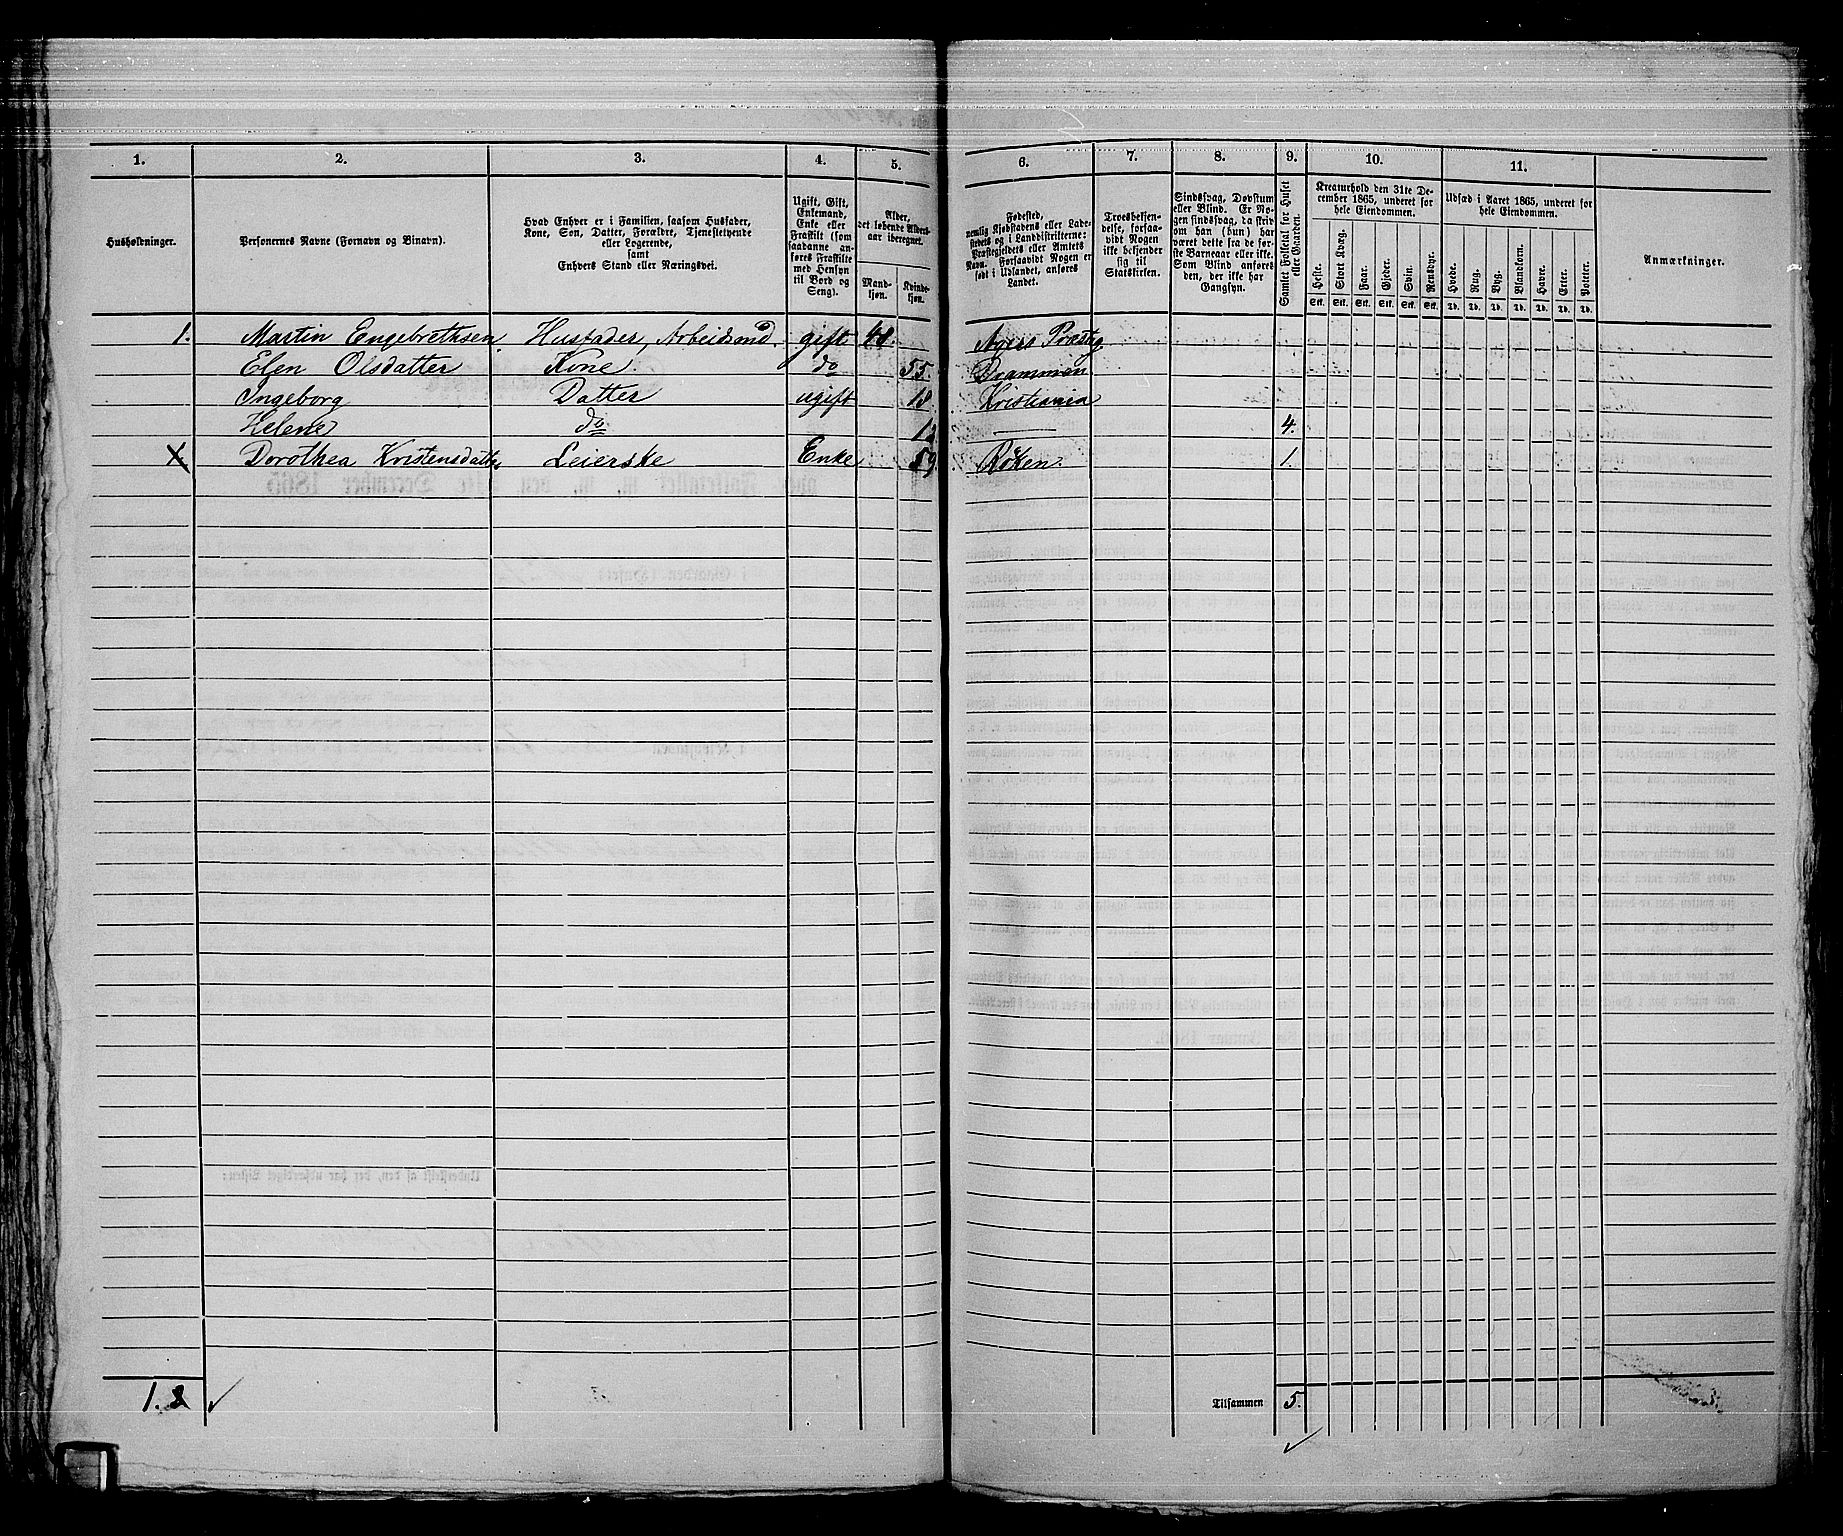 1. 2. 3. 4. 5. 6. 7. 8. 9. 10. 11.
Husholdninger.
Personernes Navne (Fornavn og Binavn).
Hvad Enhver er i Familien, saasom Husfader,
Kone, Søn, Datter, Forældre, Tjenestetyende
eller Logerende,
samt
Enhvers Stand eller Næringsvei.
Ugift, Gift,
Enkemand,
Enke eller
Fraskilt (som
saadanne an-
føres Fraskilte
med Hensyn
til Bord og
Seng).
Alder,
det løbende Alders-
aar iberegnet.
Mand-
kjøn.
Kvinde-
kjøn.
Fødested,
nemlig Kjøbstadens eller Lade-
stedets og i Landdistrikterne:
Præstegjeldets eller Amtets
Navn. Forsaavidt Nogen er
født i Udlandet, anføres
Landet.
Troesbekjen-
delse, forsaa-
vidt Nogen
ikke bekjender
sig til
Statskirken.
Sindssvag, Døvstum
eller Blind. Er No-
gen sindssvag, da skriv
om han (hun) har
været dette fra de før-
ste Barneaar eller ikke.
Som Blind anføres
den, der ikke har
Gangsyn.
Samlet Folketal for Huset
eller Gaarden.
Kreaturhold den 31te De-
cember 1865, underet for
hele Eiendommen.
Heste. Stort Kvæg. Faar. Gjeder. Svin. Rensdyr.
Stk. Stk. Stk. Stk. Stk. Stk.
Udsæd i Aaret 1865, underet for
hele Eiendommen.
Hvede. Rug. Byg. Blandkorn. Havre. Erter. Poteter.
Td. Td. Td. Td. Td. Td. Td.
Anmærkninger.
1. Martin Engebrethsen Husfader, Arbeidsmd. gift 48. Agers Præstg
Elen Olsdatter Kone. do 55. Drammen
Ingeborg Datter ugift 18 Kristiania
Helene do — 4.
Dorothea Kristensdatter Leierske Enke 59 Røken. 1.
1.
Tilsammen 5.